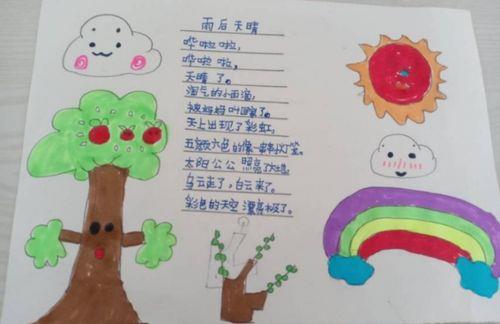 雨后天晴
哗啦啦，
哗啦啦，
天晴了。
淘气的小雨滴，
被妈妈叫回家了。
天上出现了彩虹，
五颜六色的像一串串小灯笼。
太阳公公照亮了大地
乌云走了，白云来了。
彩色的天空漂亮极了。